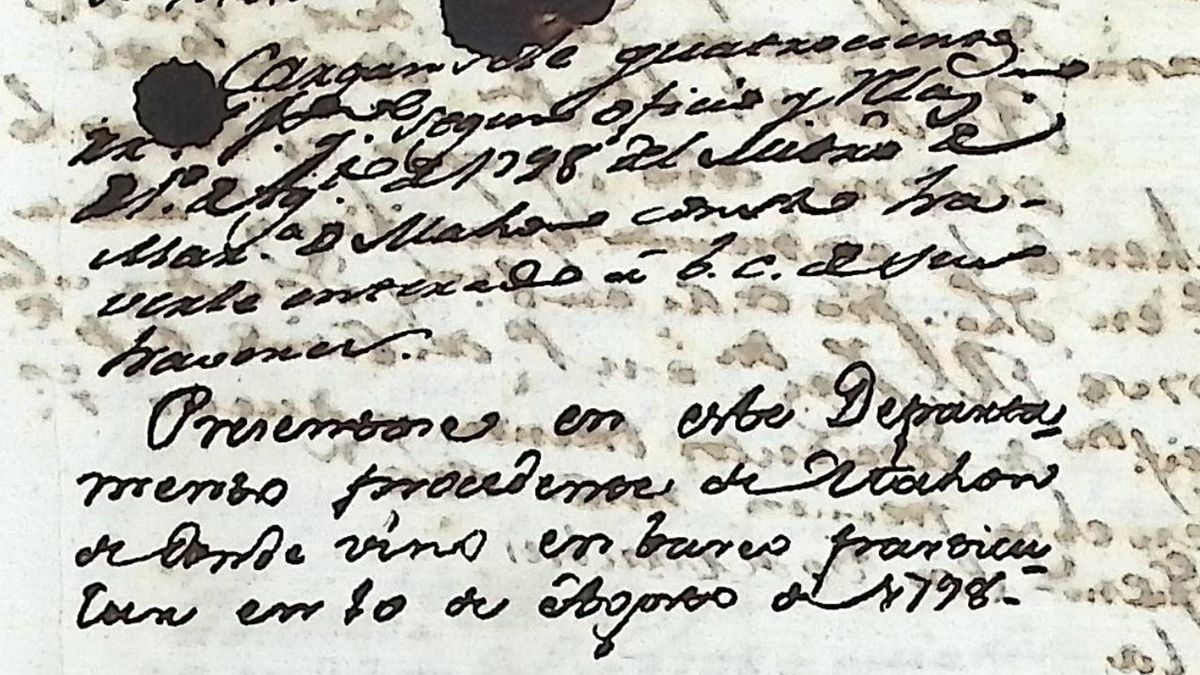 Carganse de quatrocientos
segun oficio y
de 1º de Ag.to de 1798 del Mintro de
Mar.a de Mahon consta ha-
verle enterado á b. c. de sus
haveres.
Presentose en este Departa-
mento procedente de Mahon
de donde vino en barco particu-
lar en 10 de Agosto de 1798.-